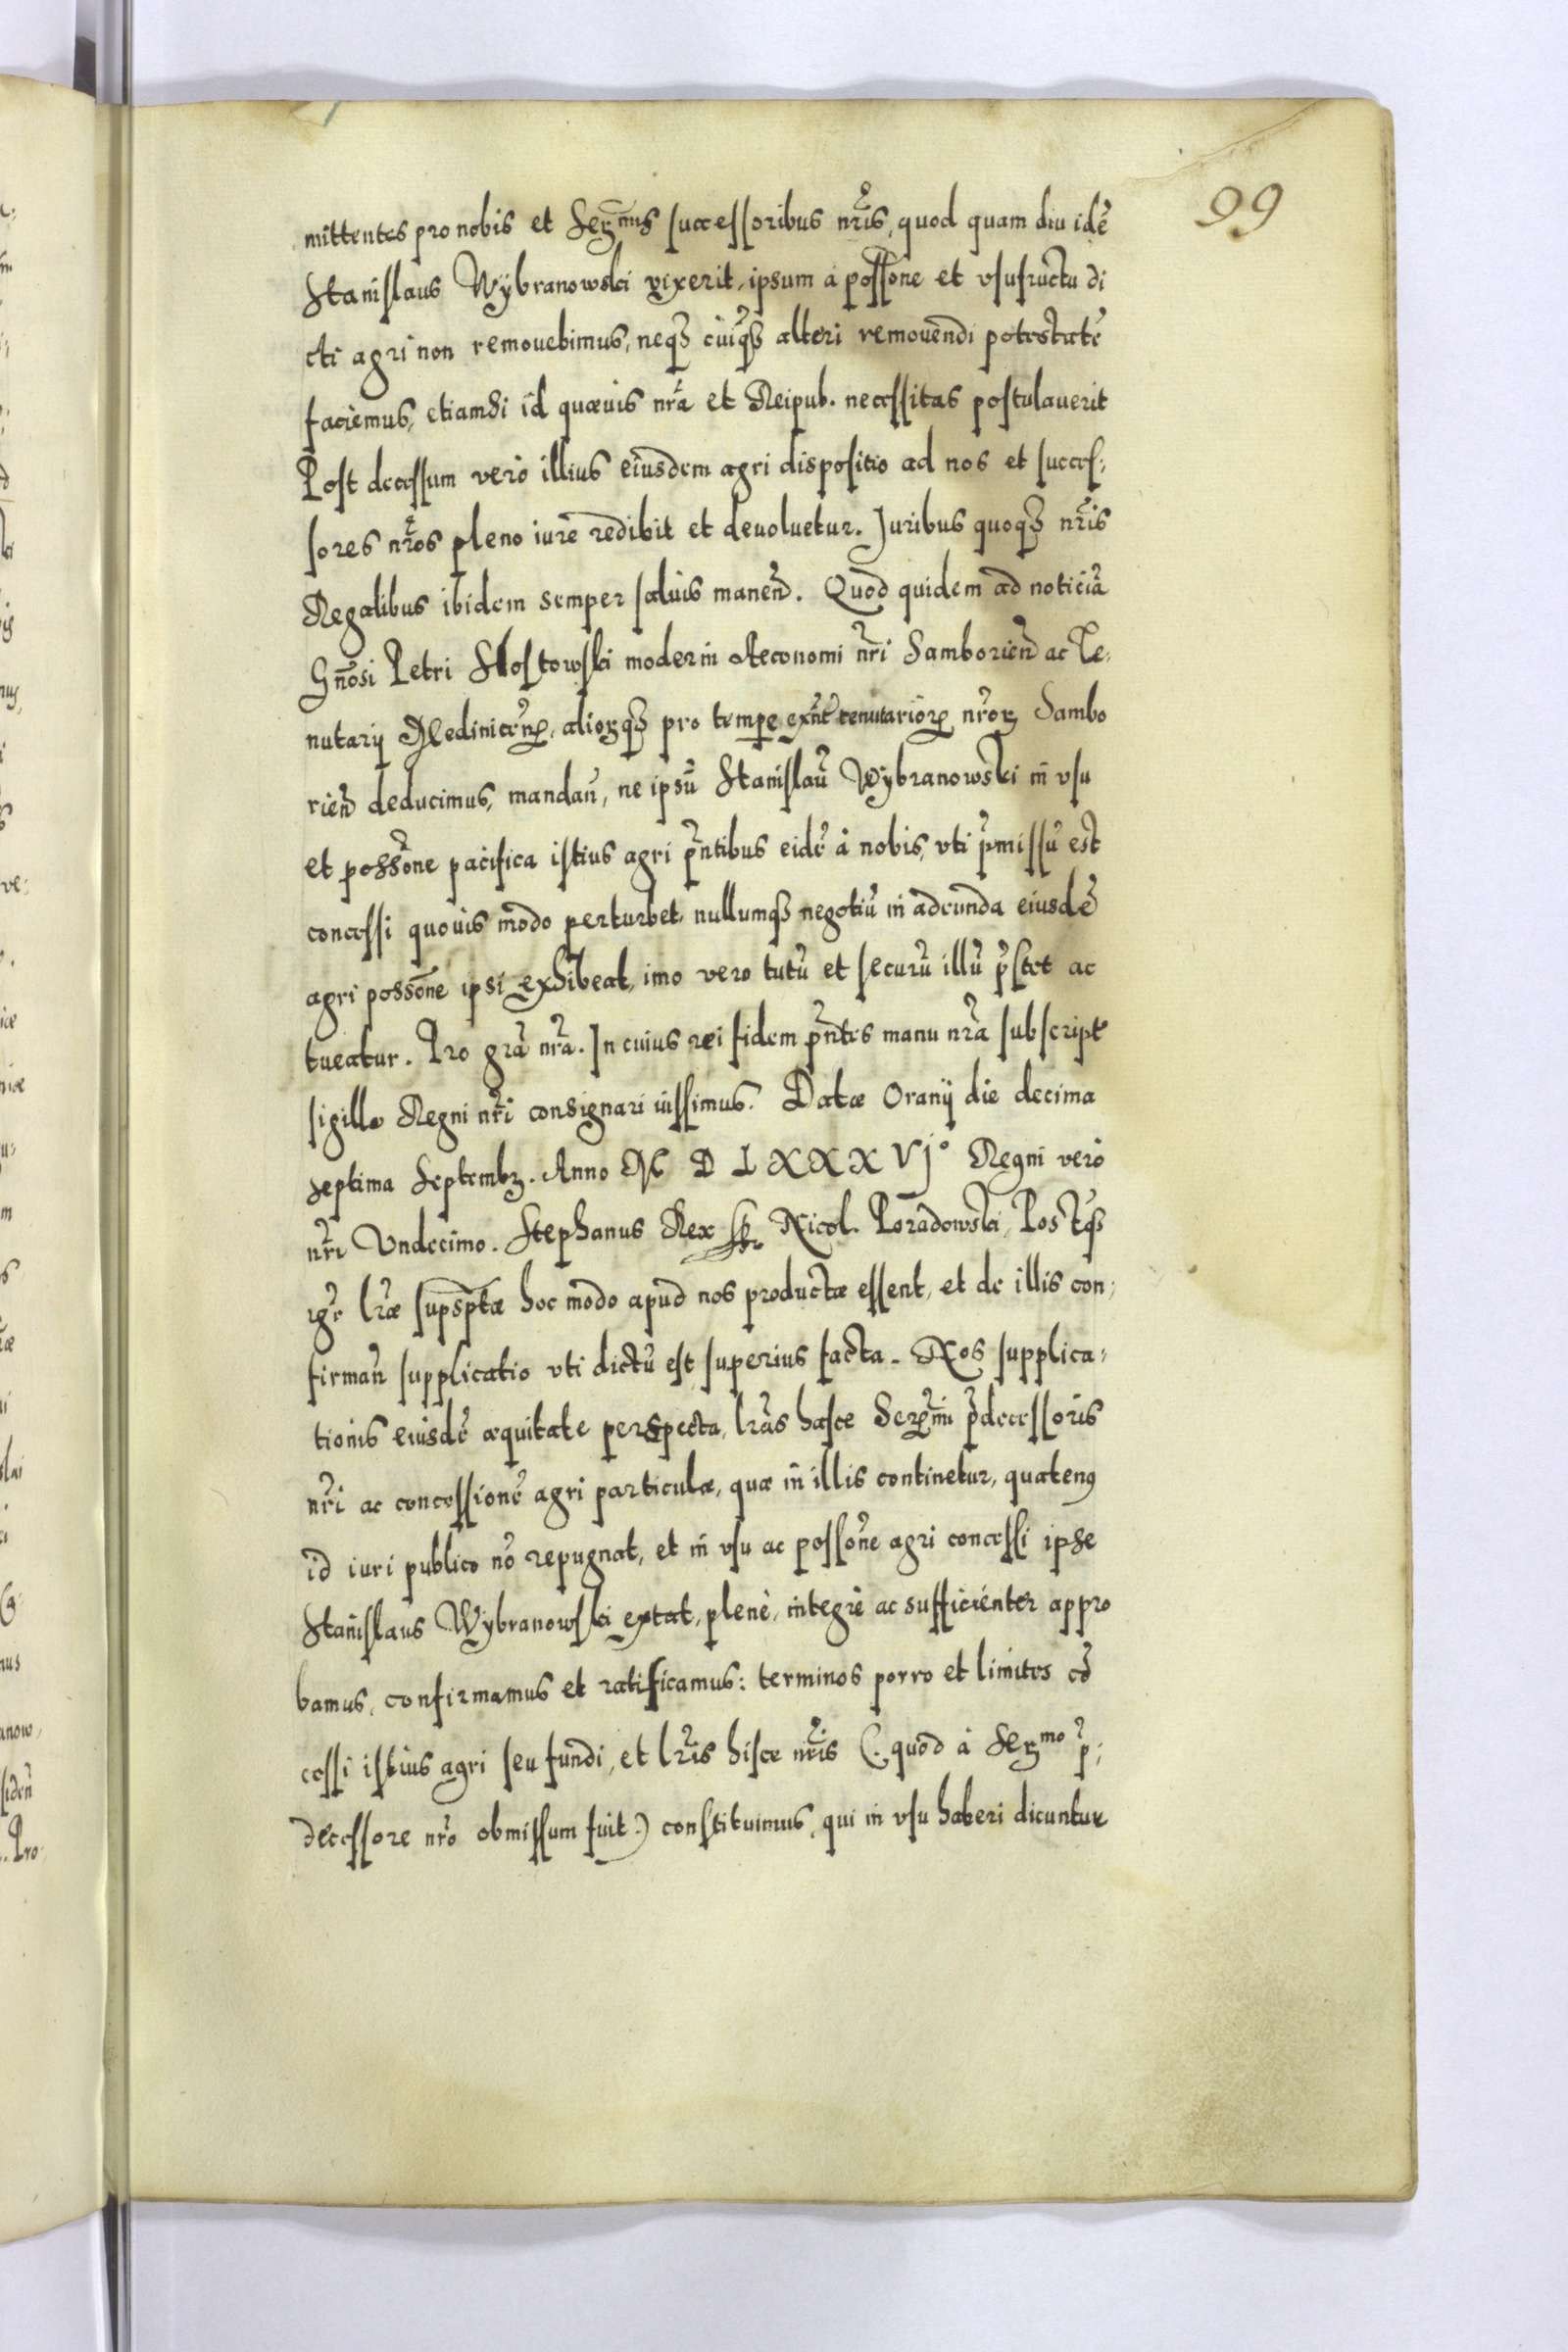 99
mittentes pro nobis et Serm̃is successoribus nr̃is, quod quam diu idẽ
Stanislaus Wÿbranowski vixerit, ipsum à possõne et vsufructu di
cti agri non remouebimus, neqꝫ cuiqꝫ alteri remouendi potestatẽ
faciemus, etiamsi id quæuis nr̃a et Reipub. necessitas postulauerit
Post decessum verò illius eiusdem agri dispositio ad nos et succes:
sores nr̃os pleno iure redibit et deuoluetur. Juribus quoqꝫ nr̃is
Regalibus ibidem semper saluis maneñ. Quod quidem ad noticiã
Gñosi Petri Slostowski moderni Aeconomi nr̃i Samborieñ ac Te,
nutarij Medinicen̄, aliorꝫqꝫ pro tempe exñt tenutarioꝝ nr̃orꝫ Sambo
rieñ deducimus, mandañ, ne ipsũ Stanislaũ Wÿbranowski in vsu
et possõne pacifica istius agri p̃ntibus eidẽ à nobis, vti p̃missũ est
concessi quouis modo perturbet, nullumqꝫ negotiũ in adeunda eiusdẽ
agri possõne ipsi exhibeat, imo vero tutũ et securũ illũ p̃stet ac
tueatur. Pro grã nr̃a. In cuius rei fidem p̃ntes manu nr̃a subscript
sigillo Regni nr̃i consignari iussimus. Datæ Oranij die decima
septima Septembꝫ. Anno M D L XXX Vjº Regni verò
nr̃i Vndecimo. Stephanus Rex Nicol. Poradowski, Postqꝫ
igr̃ lr̃æ supsp̃tæ hoc modo apud nos productæ essent, et de illis con,
firmañ supplicatio vti dictũ est superius facta. Nos supplica,
tionis eiusdẽ æquitate perspecta, lr̃as hasce Serm̃i p̃decessoris
nr̃i ac concessionẽ agri particulæ, quæ in illis continetur, quatenꝰ
id iuri publico nõ repugnat, et in vsu ac possõne agri concessi ipse
Stanislaus Wÿbranowski extat, plenè, integrè ac sufficienter appro
bamus, confirmamus et ratificamus: terminos porro et limites cõ
cessi istius agri seu fundi, et lr̃is hisce nr̃is (. quod à Serꝫmo p̃:
decessore nr̃o obmissum fuit.) constituimus, qui in vsu haberi dicuntur